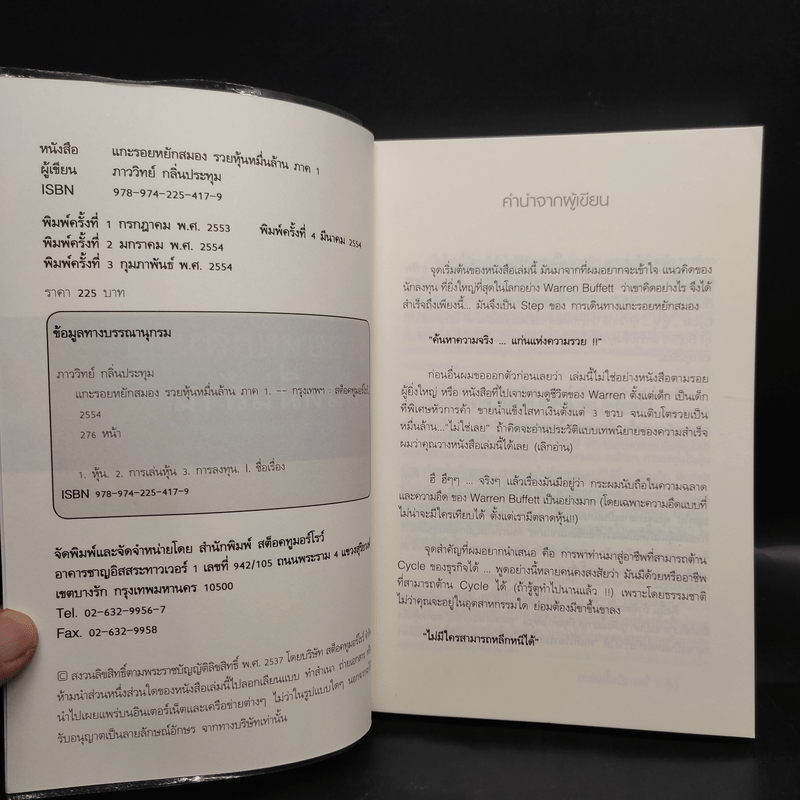 หนังสือ แกะรอยหยักสมอง รวยหุ้นหมื่นล้าน ภาค 1
ผู้เขียน ภาววิทย์ กลิ่นประทุม
ISBN 978-974-225-417-9
พิมพ์ครั้งที่ 1 กรกฎาคม พ.ศ. 2553 พิมพ์ครั้งที่ 4 มีนาคม 2554
พิมพ์ครั้งที่ 2 มกราคม พ.ศ. 2554
พิมพ์ครั้งที่ 3 กุมภาพันธ์ พ.ศ. 2554
ราคา 225 บาท
ข้อมูลทางบรรณานุกรม
ภาววิทย์ กลิ่นประทุม
แกะรอยหยักสมอง รวยหุ้นหมื่นล้าน ภาค 1. -- กรุงเทพฯ : สต็อคทูมอร์โรว์,
2554
276 หน้า
1. หุ้น. 2. การเล่นหุ้น 3. การลงทุน. I. ชื่อเรื่อง
ISBN 978-974-225-417-9
จัดพิมพ์และจัดจำหน่ายโดย สำนักพิมพ์ สต็อคทูมอร์โรว์
อาคารชาญอิสสระทาวเวอร์ 1 เลขที่ 942/105 ถนนพระราม 4 แขวงสุริยวงศ์
เขตบางรัก กรุงเทพมหานคร 10500
Tel. 02-632-9956-7
Fax. 02-632-9958
© สงวนลิขสิทธิ์ตามพระราชบัญญัติลิขสิทธิ์ พ.ศ. 2537 โดยบริษัท สต็อคทูมอร์โรว์
ห้ามนำส่วนหนึ่งส่วนใดของหนังสือเล่มนี้ไปลอกเลียนแบบ ทำสำเนา ถ่ายเอกสาร
นำไปเผยแพร่บนอินเตอร์เน็ตและเครือข่ายต่างๆ ไม่ว่าในรูปแบบใดๆ นอกจาก
รับอนุญาตเป็นลายลักษณ์อักษร จากทางบริษัทเท่านั้น
คำนำจากผู้เขียน
จุดเริ่มต้นของหนังสือเล่มนี้ มันมาจากที่ผมอยากจะเข้าใจ แนวคิดของ
นักลงทุน ที่ยิ่งใหญ่ที่สุดในโลกอย่าง Warren Buffett ว่าเขาคิดอย่างไร จึงได้
สำเร็จถึงเพียงนี้... มันจึงเป็น Step ของ การเดินทางแกะรอยหยักสมอง
"ค้นหาความจริง ... แก่นแห่งความรวย !!"
ก่อนอื่นผมขอออกตัวก่อนเลยว่า เล่มนี้ไม่ใช่อย่างหนังสือตามรอย
ผู้ยิ่งใหญ่ หรือ หนังสือที่ไปเจาะตามดูชีวิตของ Warren ตั้งแต่เด็ก เป็นเด็ก
ที่พิเศษหัวการค้า ขายน้ำแข็งใสหาเงินตั้งแต่ 3 ขวบ จนเติบโตรวยเป็น
หมื่นล้าน..."ไม่ใช่เลย" ถ้าคิดจะอ่านประวัติแบบเทพนิยายของความสำเร็จ
ผมว่าคุณวางหนังสือเล่มนี้ได้เลย (เลิกอ่าน)
ฮึ ฮึๆๆ ... จริงๆ แล้วเรื่องมันมีอยู่ว่า กระผมนับถือในความฉลาด
และความอึด ของ Warren Buffett เป็นอย่างมาก (โดยเฉพาะความอึดแบบที่
ไม่น่าจะมีใครเทียบได้ ตั้งแต่เรามีตลาดหุ้น!!)
จุดสำคัญที่ผมอยากนำเสนอ คือ การพาท่านมาสู่อาชีพที่สามารถต้าน
Cycle ของธุรกิจได้ ... พูดอย่างนี้หลายคนคงสงสัยว่า มันมีด้วยหรืออาชีพ
ที่สามารถต้าน Cycle ได้ (ถ้ารู้ตูทำไปนานแล้ว !!) เพราะโดยธรรมชาติ
ไม่ว่าคุณจะอยู่ในอุตสาหกรรมใด ย่อมต้องมีขาขึ้นขาลง
"ไม่มีใครสามารถหลีกหนีได้"